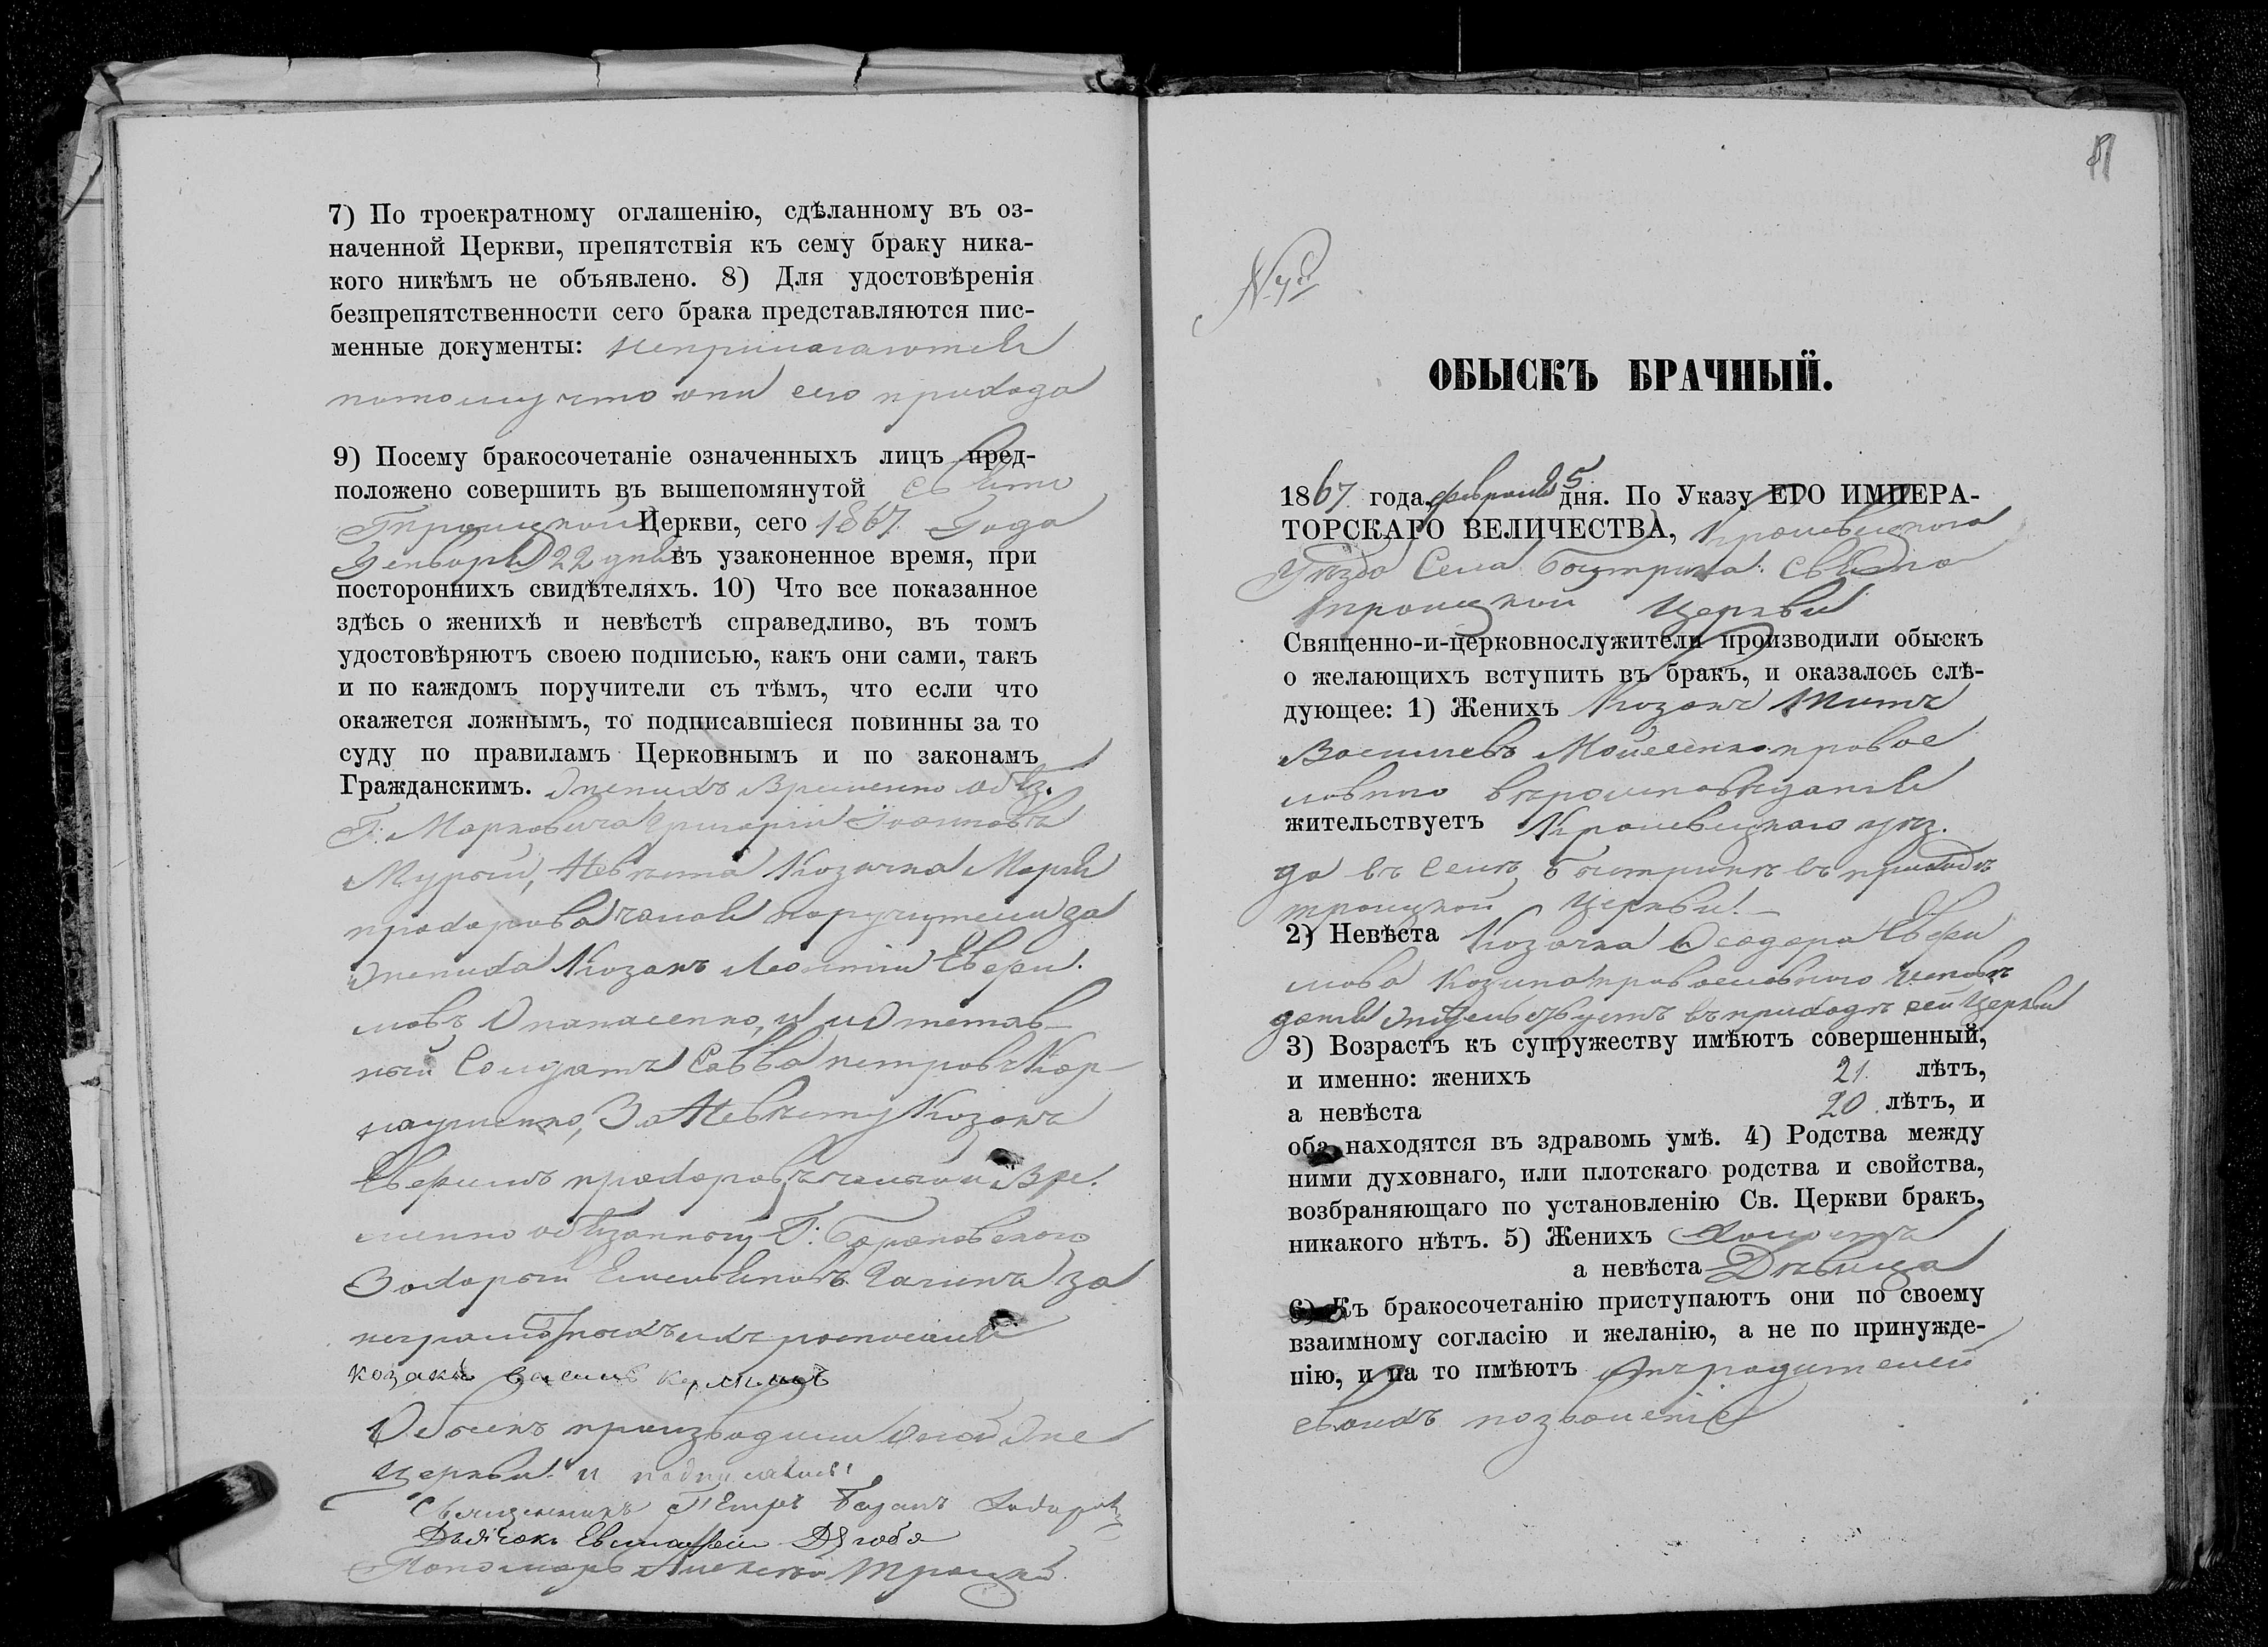 7) По троекратному оглашенію, сдѣланному въ оз-
наченной Церкви, препятствія къ сему браку ника-
кого никѣмъ не объявлено. 8) Для удостовѣренія
безпрепятственности сего брака представляются пис-
менные документы: неприлагаются
потому что они сего прихода
9) Посему бракосочетаніе означенныхъ лицъ пред-
положено совершить въ вышепомянутой Свято
Троицкой Церкви, сего 1867 Года
Генваря 22 дня въ узаконенное время, при
постороннихъ свидѣтеляхъ. 10) Что все показанное
здѣсь о женихѣ и невѣстѣ справедливо, въ томъ
удостовѣряютъ своею подписью, какъ они сами, такъ
и по каждомъ поручители съ тѣмъ, что если что
окажется ложнымъ, то подписавшіеся повинны за то
суду по правиламъ Церковнымъ и по законамъ
Гражданскимъ. Женихъ Временно обяз.
Г. Марковича Григорій Іоанновъ
Мурый, Невѣста Козачка Марія
Прохорова поручители за
жениха Козакъ Леонтій Евфи.
мовъ Опанасенко, и Отстав-
ной Солдатъ Савва петровъ Кор-
За Невѣсту Козакъ
Евфимъ прохоровъ и Вре.
менно обязанный Г.
Захарій Емельяновъ за
неграмотныхъ ихъ росписался
козакъ
Обыскъ производили оной же
Церкви и подписались:
Священникъ Петръ
Дьячокъ Евстафій
Пономарь Алексѣй Троцкій
ОБЫСКЪ БРАЧНЫЙ.
1867 года февраля 5 дня. По Указу ЕГО ИМПЕРА-
ТОРСКАГО ВЕЛИЧЕСТВА, Кролевецкого
Уѣзда Села Быстрика Свято
троицкой Церкви
Священно-и-церковнослужители производили обыскъ
о желающихъ вступить въ бракъ, и оказалось слѣ-
дующее: 1) Женихъ Козакъ Титъ
Васильевъ Мойсеенко правос
лавного вѣроисповѣданія
жительствуетъ Кролевецкаго уѣз.
да въ селѣ Быстрикѣ въ приходѣ
троицкой Церкви.
2) Невѣста Козачка Ѳеодора Евфи
мова православного исповѣ
данія жительствуетъ въ приходѣ сей Церкви
3) Возрастъ къ супружеству имѣютъ совершенный,
и именно: женихъ 21 лѣтъ,
а невѣста 20 лѣтъ, и
оба находятся въ здравомъ умѣ. 4) Родства между
ними духовнаго, или плотскаго родства и свойства,
возбраняющаго по установленію Св. Церкви бракъ,
никакого нѣтъ. 5) Женихъ Холостъ
а невѣста Дѣвица
6) Къ бракосочетанію приступаютъ они по своему
взаимному согласію и желанію, а не по принужде-
нію, и на то имѣютъ отъ родителей
своихъ позволеніе